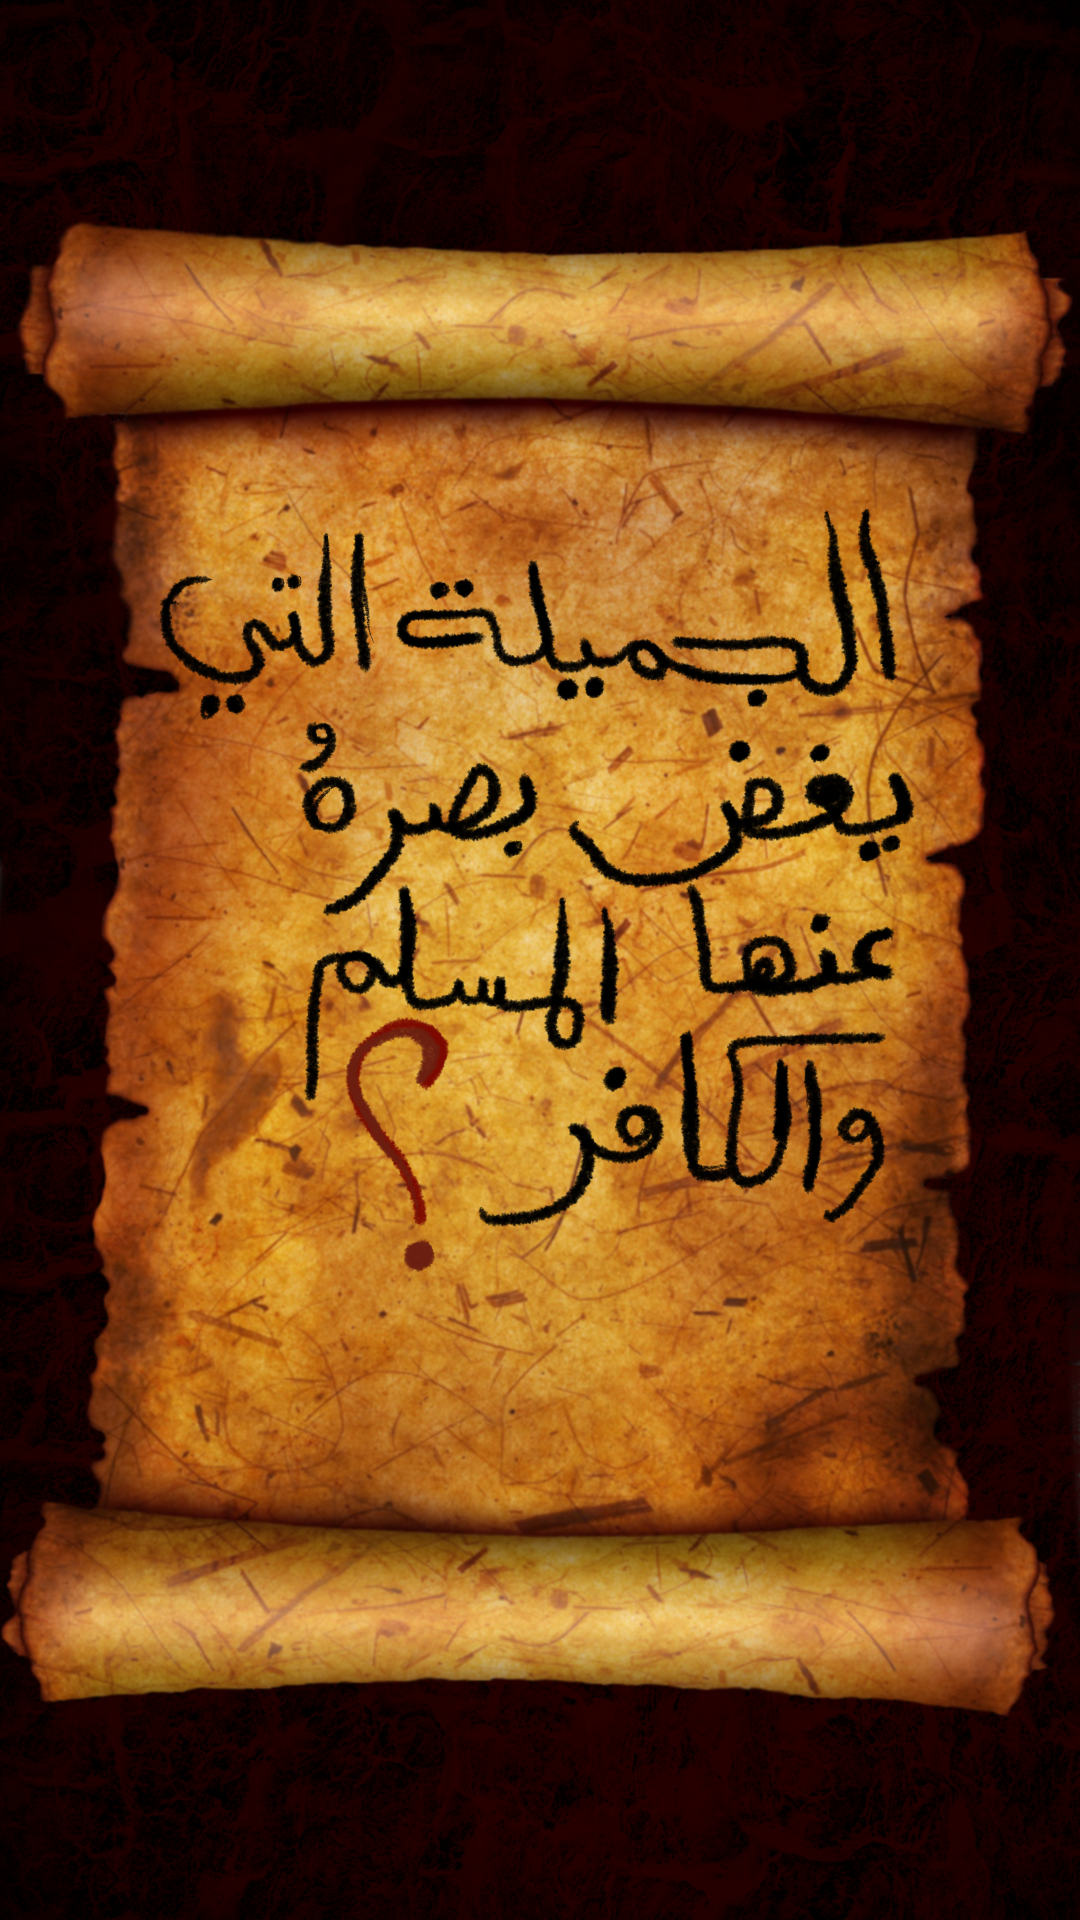 الجميلة التي
يغض بصرهُ
عنها المسلم
والكافر ؟